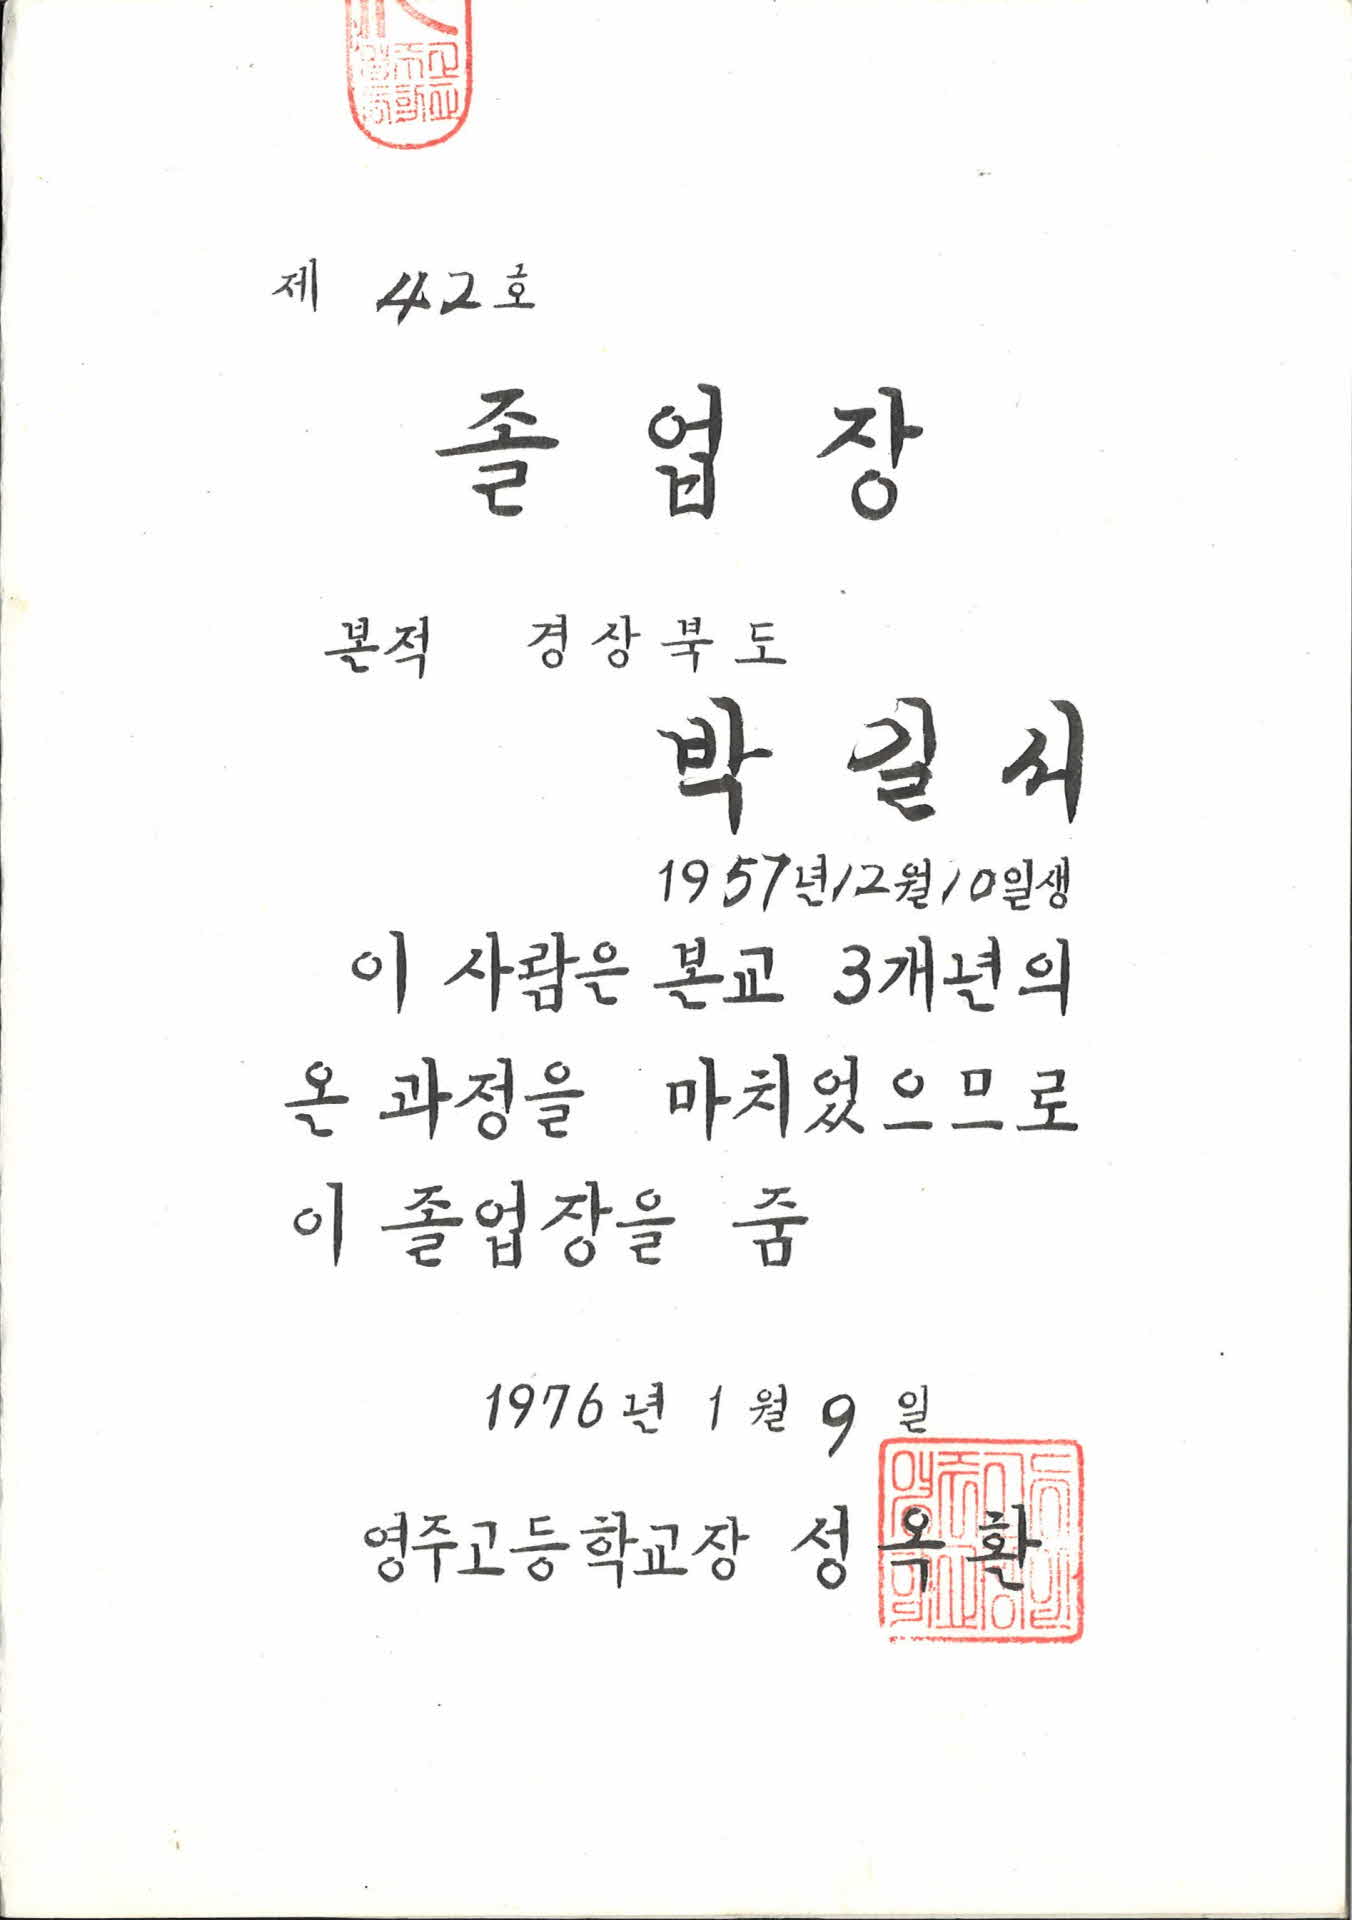 제 42호
졸업장
본적 경상북도
박길서
1957년12월10일생
이 사람은 본교 3개년의
온 과정을 마치었으므로
이 졸업장을 줌
1976년 1월 9일
영주고등학교장 성옥환